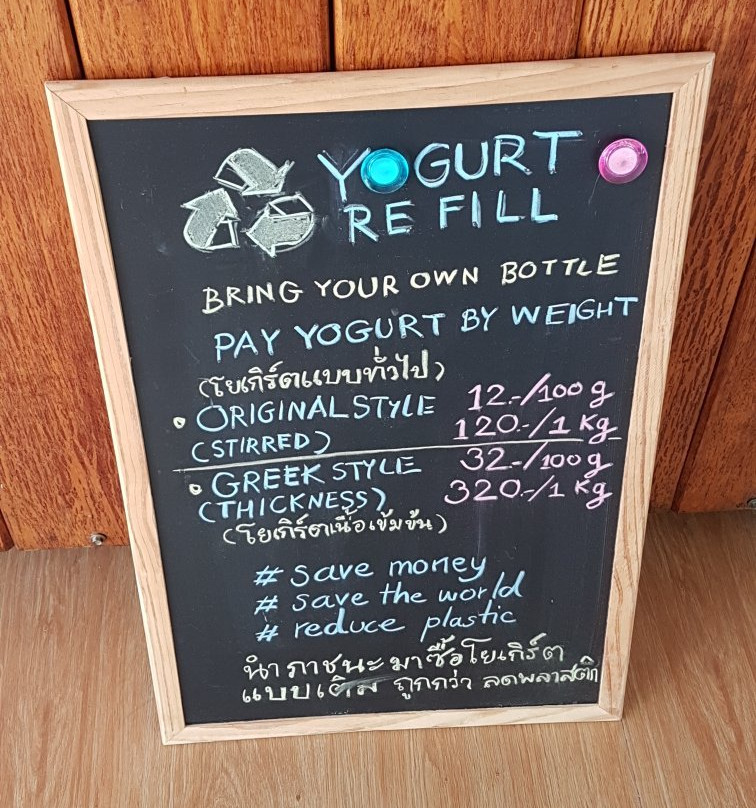 YOGURT
REFILL
BRING YOUR OWN BOTTLE
PAY YOGURT BY WEIGHT
(โยเกิร์ตแบบทั่วไป)
• ORIGINAL STYLE 12.-/100 g
(STIRRED) 120.-/1 Kg
• GREEK STYLE 32.-/100g
(THICKNESS) 320.-/1 Kg
(โยเกิร์ตเนื้อเข้มข้น)
# save money
# save the world
# reduce plastic
นำภาชนะมาซื้อโยเกิร์ต
แบบเติม ถูกกว่า ลดพลาสติก